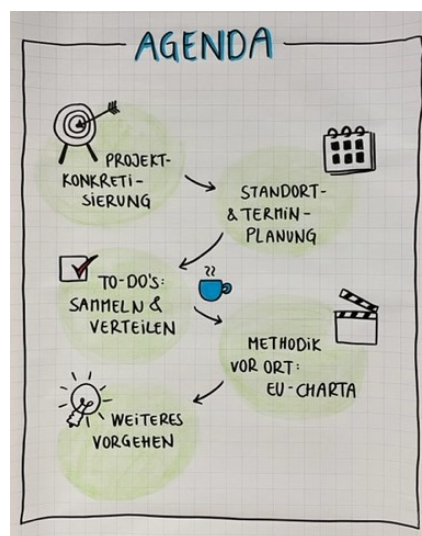 AGENDA
PROJEKT-
KONKRETI-
SIERUNG
STANDORT-
& TERMIN-
PLANUNG
TO-DO'S:
SAMMELN &
VERTEILEN
METHODIK
VOR ORT:
EU-CHARTA
WEITERES
VORGEHEN